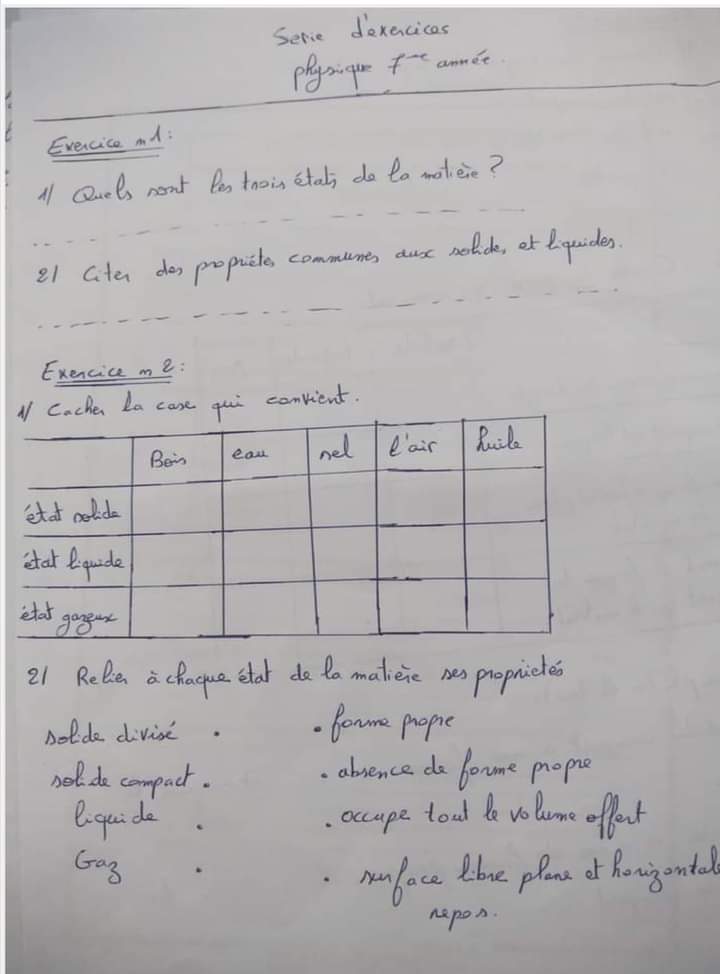 Serie d'exercices
physique 7me année.
Exercice n1:
1/ Quels sont les trois états de la matière?
2/ Citer des propriétés communes aux solides et liquides.
Exercice n2:
1/ Cocher la case qui convient.
Bois eau sel l'air huile
état solide
état liquide
état gazeux
2/ Relier à chaque état de la matière ses propriétés
solide divisé . . forme propre
solide compact . . absence de forme propre
liquide . . occupe tout le volume offert
Gaz . . surface libre plane et horizontal
repos.